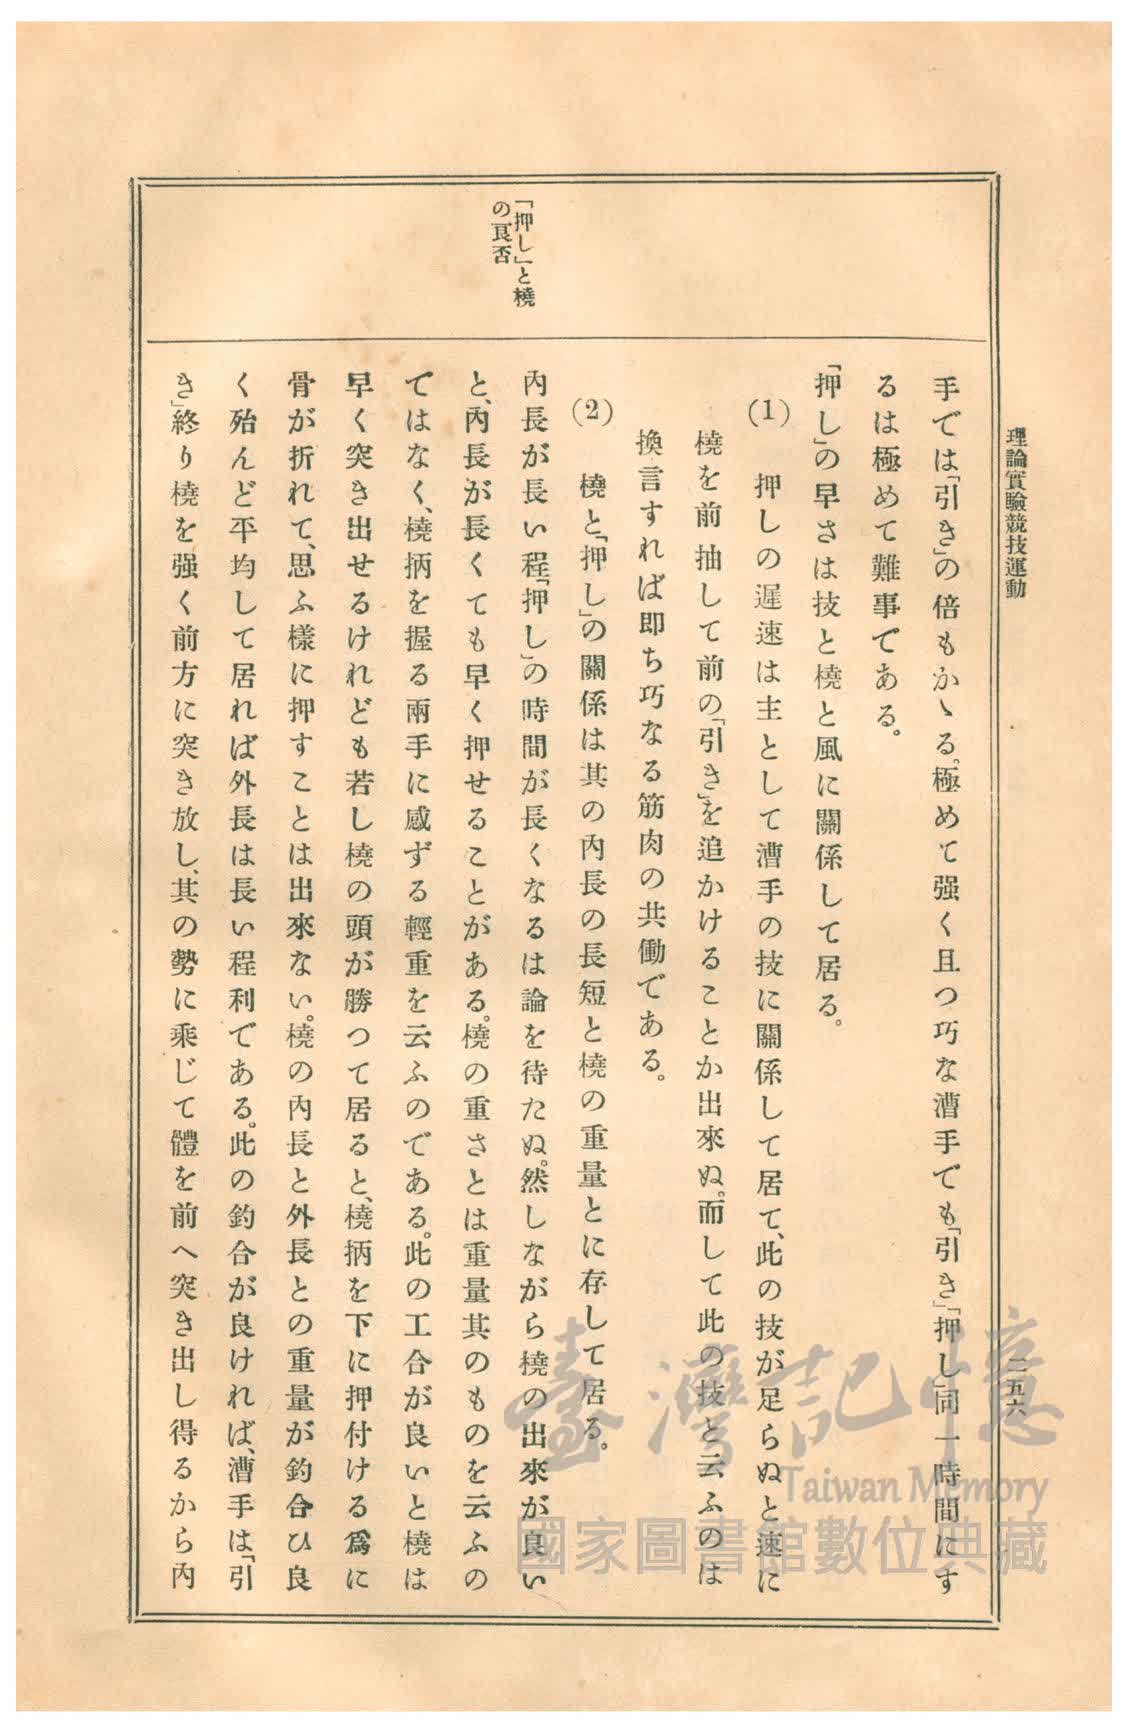 理論實驗競技運動
二五六
「押し」と橈
の良否
手では「引き」の倍もかゝる。極めて强く且つ巧な漕手でも「引き」「押し」同一時間にす
るは極めて難事である。
「押し」の早さは技と橈と風に關係して居る。
(1) 押しの遲速は主として漕手の技に關係して居て、此の技が足らぬと速に
橈を前抽して前の「引き」を追かけることか出來ぬ。而して此の技と云ふのは
換言すれば卽ち巧なる筋肉の共働である。
(2) 橈と「押し」の關係は其の內長の長短と橈の重量とに存して居る。
內長が長い程「押し」の時間が長くなるは論を待たぬ。然しながら橈の出來が良い
と、內長が長くても早く押せることがある。橈の重さとは重量其のものを云ふの
てはなく、橈柄を握る兩手に感ずる輕重を云ふのである。此の工合が良いと橈は
早く突き出せるけれども若し橈の頭が勝つて居ると、橈柄を下に押付ける爲に
骨が折れて、思ふ樣に押すことは出來ない。橈の內長と外長との重量が釣合ひ良
く殆んど平均して居れば外長は長い程利である。此の釣合が良ければ、漕手は「引
き」終り橈を强く前方に突き放し、其の勢に乘じて體を前へ突き出し得るから內
臺灣記憶
Taiwan Memory
國家圖書館數位典藏